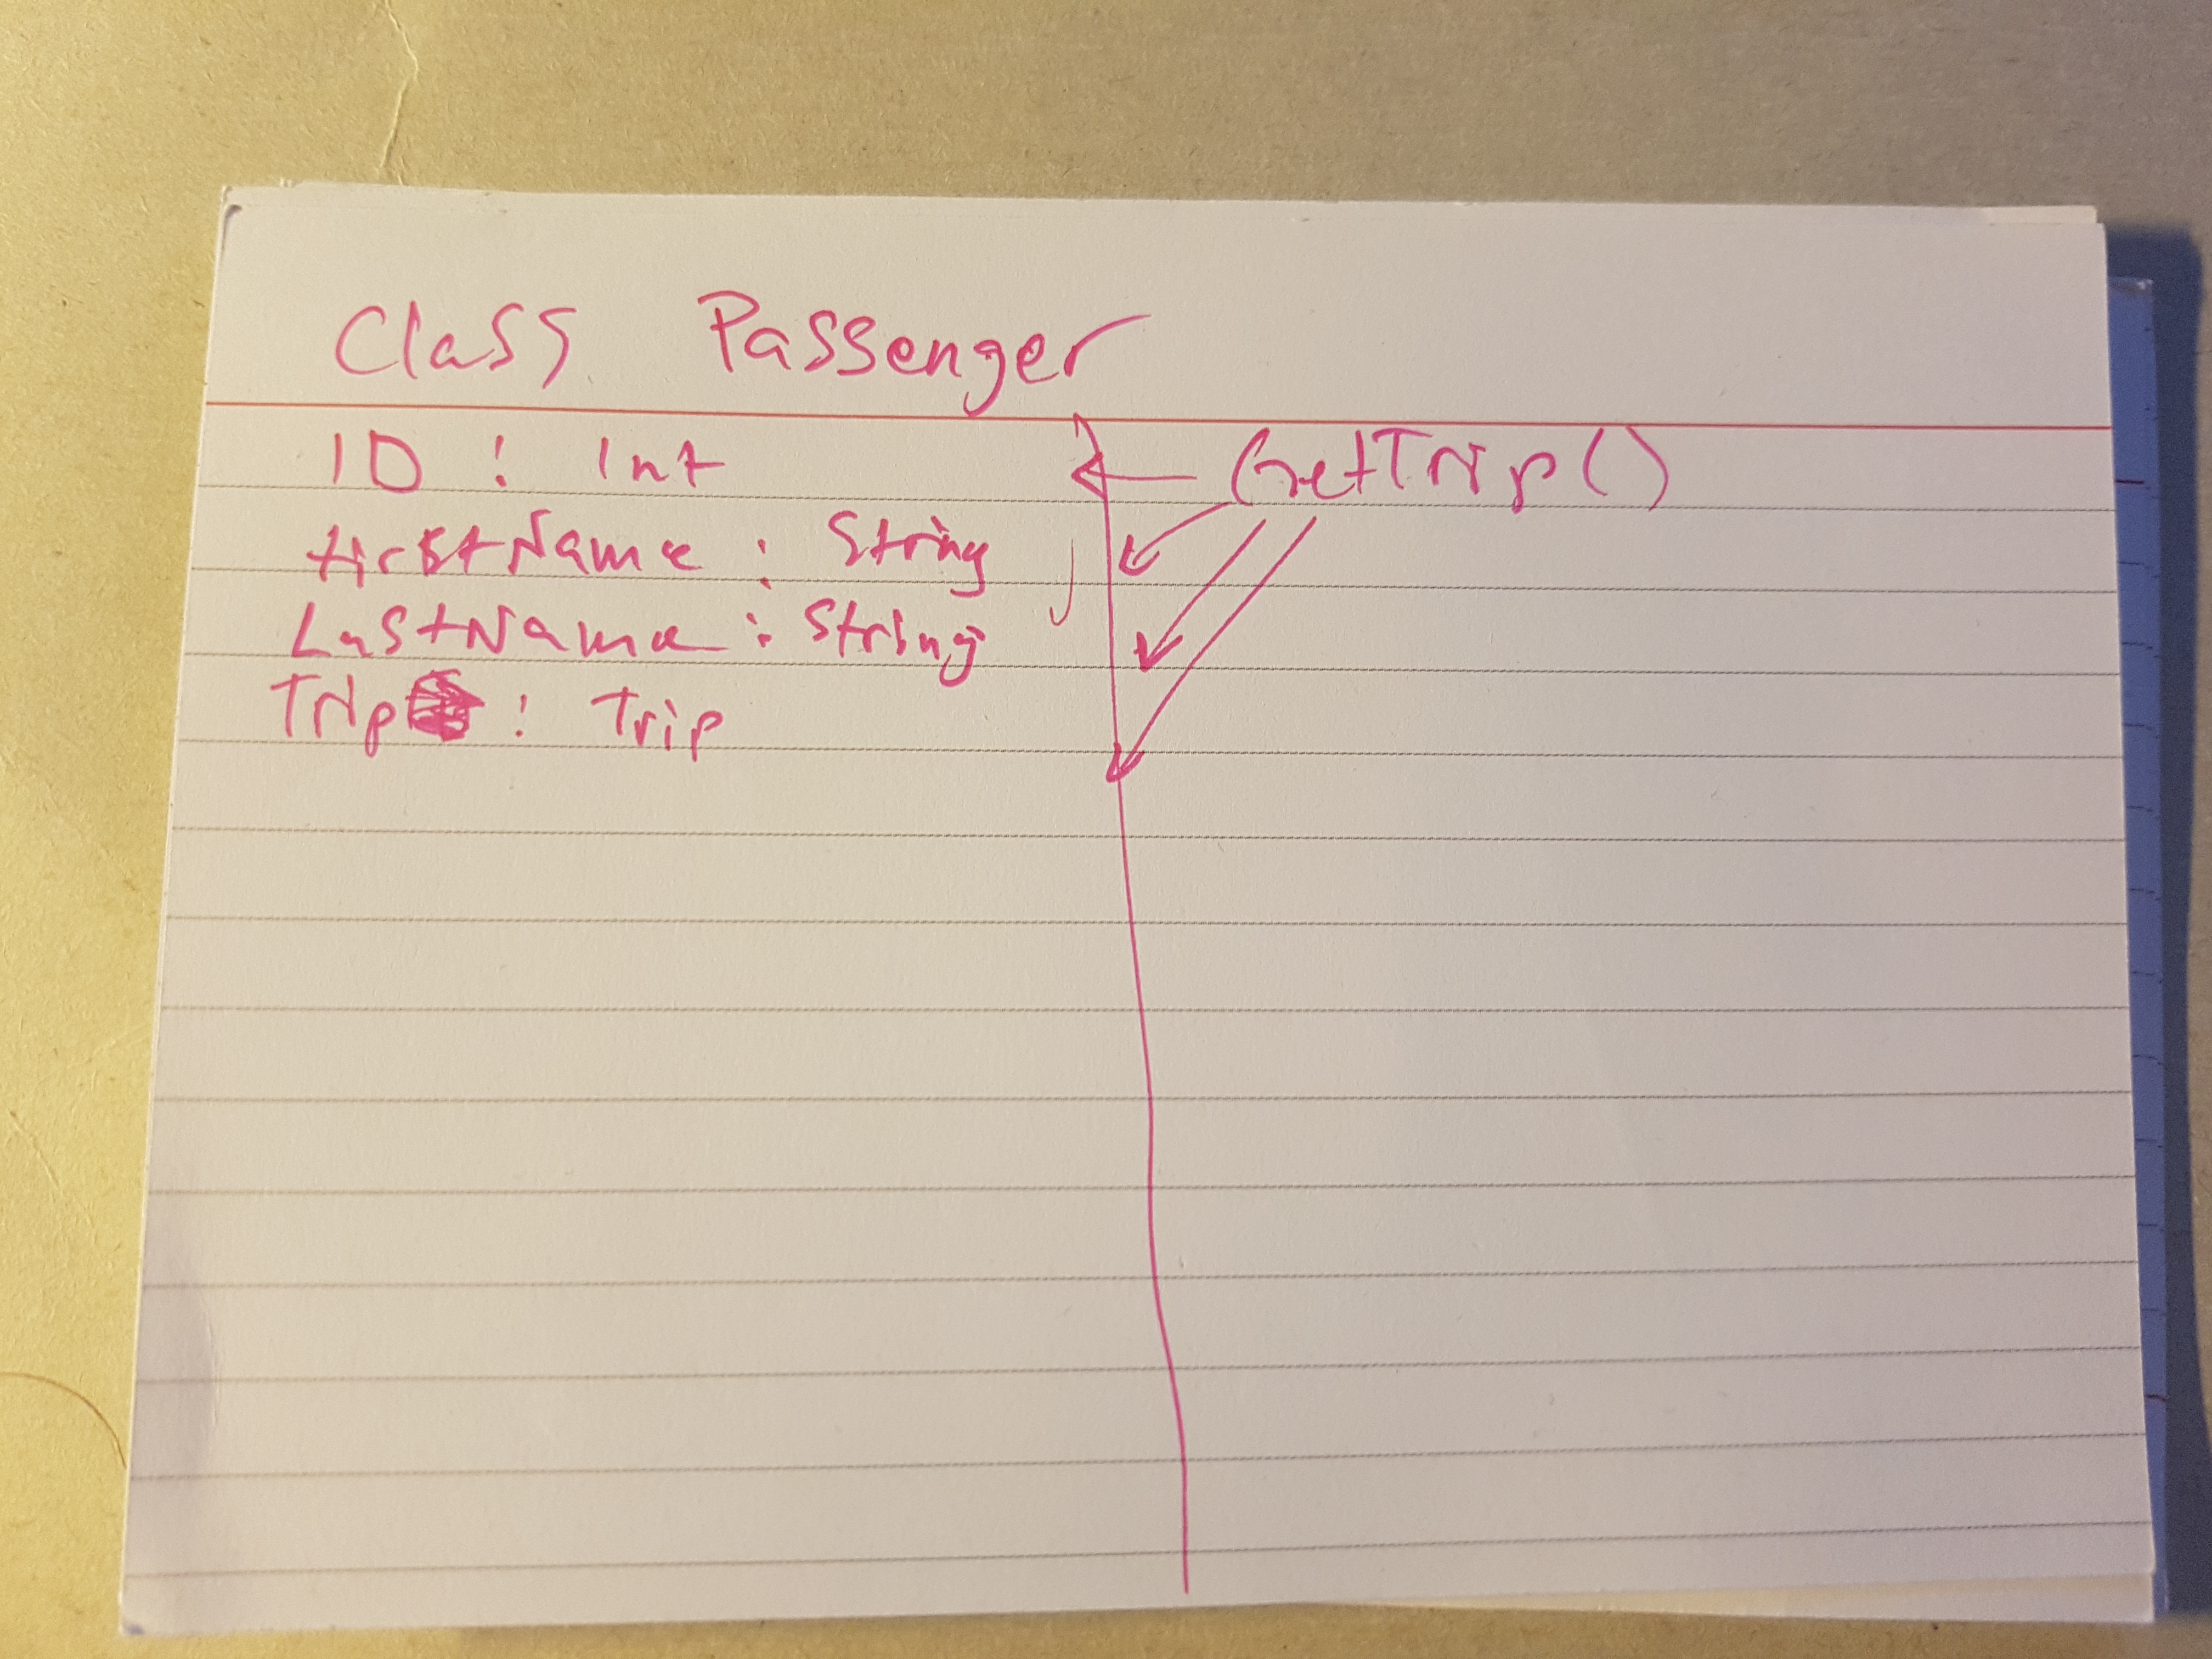 Class Passenger
ID : Int
FirstName : String
LastName : String
Trip : Trip
GetTrip()